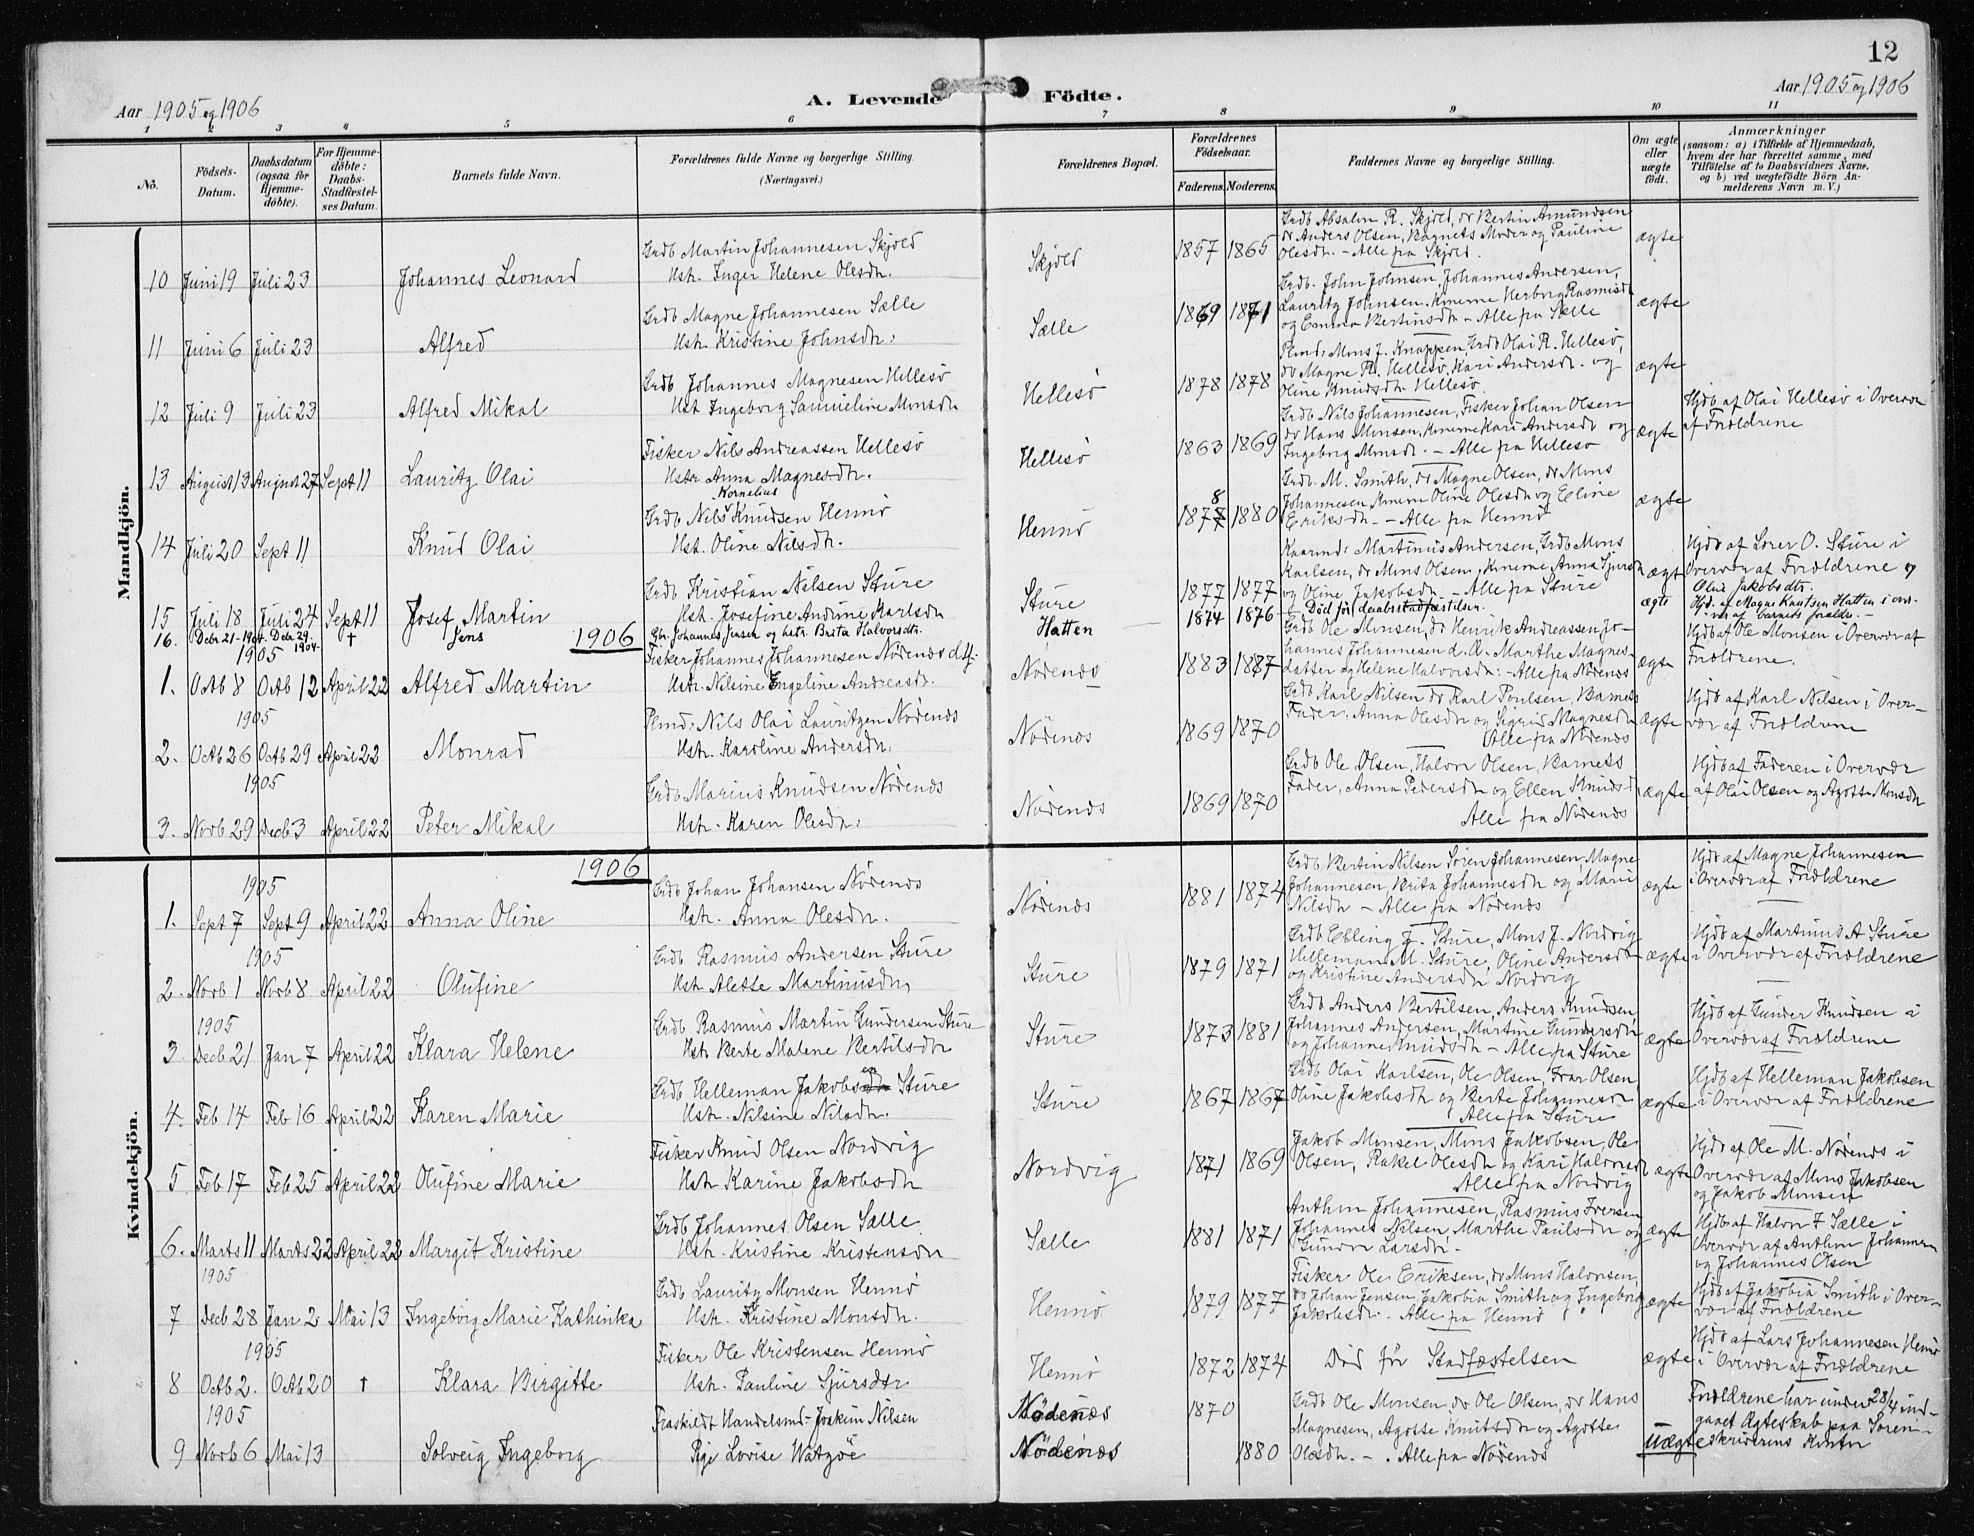 12
Aar 1905 og 1906
A. Levende Födte.
Aar 1905 og 1906
1 2 3 4 5 6 7 8 9 10 11
No.
Födsels-Datum.
Daabsdatum (ogsaa for Hjemme-döbte).
For Hjemme-döbte: Daabs-Stadfæstel-ses Datum.
Barnets fulde Navn.
Forældrenes fulde Navne og borgerlige Stilling.
(Næringsvei.)
Forældrenes Bopæl.
Forældrenes Födselsaar.
Faderens. Moderens.
Faddernes Navne og borgerlige Stilling.
Om ægte eller uægte födt.
Anmærkninger
(saasom: a) i Tilfælde af Hjemmedaab,
hvem der har forrettet samme, med
Tilföielse af to Daabsvidners Navne,
og b) ved uægtefödte Börn An-
melderens Navn m. V.)
Mandkjön.
Grdb Absalon R. Skjold, do Bertin Amundsen
do Anders Olsen, Barnets Moder og Pauline
Olesdr. - Alle fra Skjold.
Grdb Martin Johannesen Skjold
10 Juni 19 Juli 23 Johannes Leonard Hstr. Inger Helene Olesdr. Skjold 1857 1865 ægte
Grdb. John Johnsen, Johannes Andersen,
Lauritz Johnsen, Knerne Herborg Rasmusdr
og Emma Bertinsdr - Alle fra Sælle
Grdb Magne Johannesen Sælle
11 Juni 6 Juli 23 Alfred Hstr. Kristine Johnsdr: Sælle 1869 1871 ægte
Plmd: Mons J. Knappen, Grdb Olai R. Hellesø,
do Magne R. Hellesø, Kari Andersdr. og
Oline Knudsdr Hellesø
Grdb Johannes Magnesen Hellesø
12 Juli 9 Juli 23 Alfred Mikal Hst Ingeborg Samueline Monsdr Hellesø 1878 1878 ægte
Grdb Nils Johannesen, Fisker Johan Olsen
do Hans Monsen, Knerne Kari Andersdr og
Ingeborg Monsdr. - Alle fra Hellesø
Hjdb af Olai Hellesø i Overvær
af Forældrene
Fisker Nils Andreassen Hellesø
13 August 13 August 27 Sept 11 Lauritz Olai Hstr Anna Magnesdr. Hellesø 1863 1869 ægte
Grdb. M. Smith, do Magne Olsen, do Mons
Johannesen, Knerne Oline Olesdr og Eline
Eriksdr. - Alle fra Hennø
Kornelius
Grdb Nils Knudsen Hennø
14 Juli 20 Sept 11 Knud Olai Hst. Oline Nilsdr. Hennø 1877 8 1880 ægte
Kaarmd: Martinus Andersen, Grdb Mons
Karlsen, do Mons Olsen, Knerne Anna Sjursdr
og Oline Jakobsdr. - Alle fra Sture
Hjdb af Lærer O. Sture i
Overvær af Forældrene og
Oline Jakobsdtr.
Grdb Kristian Nilsen Sture
15 Juli 18 Juli 24 Sept 11 Josef Martin Hstr. Josefine Andrine Karlsdr Sture 1877 1877 ægte
16. Decbr 21-1904. Decbr 29. 1904. † Jens Gb. Johannes Jensen og hstr. Brita Halvorsdtr. Hatten 1874 1876 Död för daabsstadfæstelsen. ægte
Hjd. af Magne Knutsen Hatten i over-
vær af barnets forældre. -
1906
Grdb Ole Monsen, do Henrik Andreassen Jo-
hannes Johannesen d. Æ. Marthe Magnes-
datter og Helene Halvorsdr: - Alle fra Nødenes
Hjdb af Ole Monsen i Overvær af
Forældrene.
1905 Fisker Johannes Johannesen Nødenes d.y.
1. Octb 8 Octb 12 April 22 Alfred Martin Hstr. Nilsine Engeline Andreasdr. Nødenes 1883 1887 ægte
Grdb Karl Nilsen do Karl Poulsen, Barnets
Fader, Anna Olesdr og Sigrid Magnesdr
Alle fra Nødenes
Hjdb af Karl Nilsen i Over-
vær af Forældrene
1905 Plmd: Nils Olai Lauritzen Nødenes
2. Octb 26 Octb 29 April 22 Monrad Hstr. Karoline Andersdr: Nødenes 1869 1870 ægte
Grdb Ole Olsen, Halvor Olsen, Barnets
Fader, Anna Pedersdr og Ellen Knudsdr
Alle fra Nødenes
Hjdb af Faderen i Overvær
af Olai Olsen og Agotte Monsdr
1905 Grdb Marius Knudsen Nødenes
3. Novb 29 Decb 3 April 22 Peter Mikal Hstr. Karen Olesdr: Nødenes 1869 1870 ægte
Kvindekjön.
1906
Grdb Bertin Nilsen Søren Johannesen, Magne
Johannesen, Brita Johannesdr og Marie
Nilsdr - Alle fra Nødenes
Hjdb af Magne Johannesen
i Overvær af Forældrene
1905 Grdb Johan Johansen Nødenes
1. Sept 7 Sept 9 April 22 Anna Oline Hstr. Anna Olesdr. Nødenes 1881 1874 ægte
Grdb Elling J. Sture, Mons J. Nordvig
Helleman M. Sture, Oline Andersdr
og Kristine Andersdr Nordvig
Hjdb af Martinus A Sture
i Overvær af Forældrene
1905 Grdb Rasmus Andersen Sture
2. Novb 1 Novb 8 April 22 Olufine Hstr Alette Martinusdr Sture 1879 1871 ægte
Grdb Anders Bertilsen, Anders Knudsen,
Johannes Andersen, Martine Gundersdr
og Johanne Knudsdr - Alle fra Sture
Hjdb af Gunder Knudsen i
Overvær af Forældrene
1905 Grdb Rasmus Martin Gundersen Sture
3 Decb 21 Jan 7 April 22 Klara Helene Hstr Berte Malene Bertilsdr Sture 1873 1881 ægte
Grdb Olai Karlsen, Ole Olsen, Ivar Olsen,
Oline Jakobsdr og Berte Johannesdr
Alle fra Sture
Hjdb af Helleman Jakobsen
i Overvær af Forældrene
Grdb Helleman Jakobsen Sture
4. Feb 14 Feb 16 April 22 Karen Marie Hstr. Nilsine Nilsdr. Sture 1867 1867 ægte
Jakob Monsen, Mons Jakobsen, Ole
Olsen, Rakel Olesdr og Kari Halvorsdr
Alle fra Nordvig
Hjdb af Ole M. Nødenes i
Overvær af Mons Jakobsen
og Jakob Monsen
Fisker Knud Olsen Nordvig
5 Feb 17 Feb 25 April 22 Olufine Marie Hstr Karine Jakobsdr Nordvig 1871 1869 ægte
Anthon Johannesen, Rasmus Iversen
Johannes Nilsen, Marthe Paulsdr og
Gunder Larsdr. -
Hjdb af Halvor F Sælle i
Overvær af Anthon Johannesen
og Johannes Olsen
Grdb Johannes Olsen Sælle
6. Marts 11 Marts 22 April 22 Margit Kristine Hstr. Kristine Kristensdr Sælle 1881 1871 ægte
Fisker Ole Eriksen, do Mons Halvorsen,
do Johan Jensen, Jakobia Smith og Ingeborg
Jakobsdr. - Alle fra Hennø
Hjdb af Jakobia Smith i Over-
vær af Forældrene
1905 Grdb Lauritz Monsen Hennø
7 Decb 28 Jan 2 Mai 13 Ingeborg Marie Kathinka Hstr. Kristine Monsdr. Hennø 1879 1877 ægte
Hjdb af Lars Johannesen Hennø
i Overvær af Forældrene
1905 Fisker Ole Kristensen Hennø
8 Octb 2. Octb 20 † Klara Birgitte Hstr. Pauline Sjursdtr Hennø 1872 1874 Död för Stadfæstelsen ægte
Grdb Ole Monsen, do Ole Olsen, do Hans
Magnesen, Agotte Knutsdr og Agotte
Olesdr. - . Alle fra Nødenes
Forældrene har under 28/4 ind-
gaaet Ægteskab paa Soren-
skriverens Kontor
1905 Fraskildt Handelsmd. Joakim Nilsen Nødenes 1870
9 Novb 6 Mai 13 Solveig Ingeborg Pige Lovise Watzøe Nødenes 1880 Uægte